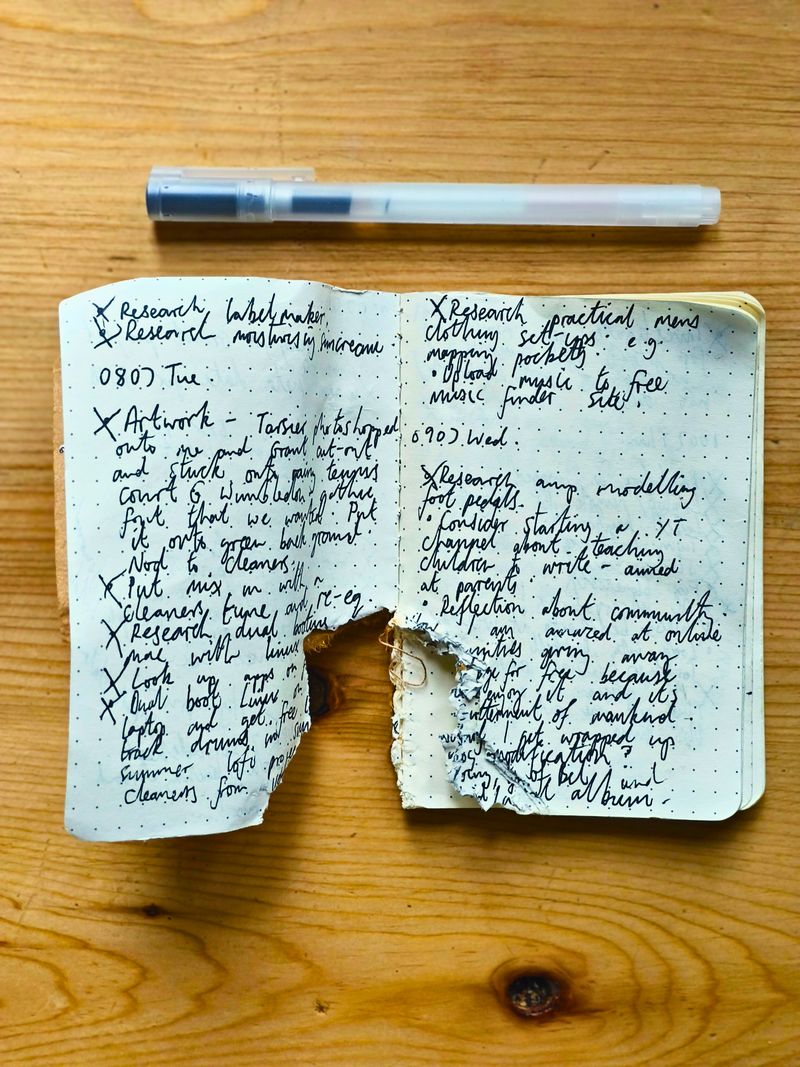 x Research label maker
x Research moisturising suncream
0807 Tue.
x Artwork - Tarsier photoshopped
onto me and Grant cut-out
and stuck onto
court & Wimbledon gothic
font that we wanted. Put
it onto green background.
Nod to cleaners.
x Put mix in with a
cleaners tune and re-eq
x Research dual booting
mac with linux
x Look up apps on
x Dual boot Linux on
laptop and get free
track drums and
summer lofi
cleaners from
x Research practical mens
clothing set-ups. e.g
mapping pockets.
• Upload music to free
music finder site.
0907. Wed.
x Research amp modelling
foot pedals.
• Consider starting a YT
channel about teaching
children to write - aimed
at parents.
• Reflection about community.
am amazed at online
giving away
for free because
enjoy it and its
of mankind.
I get wrapped up
?
of
album.